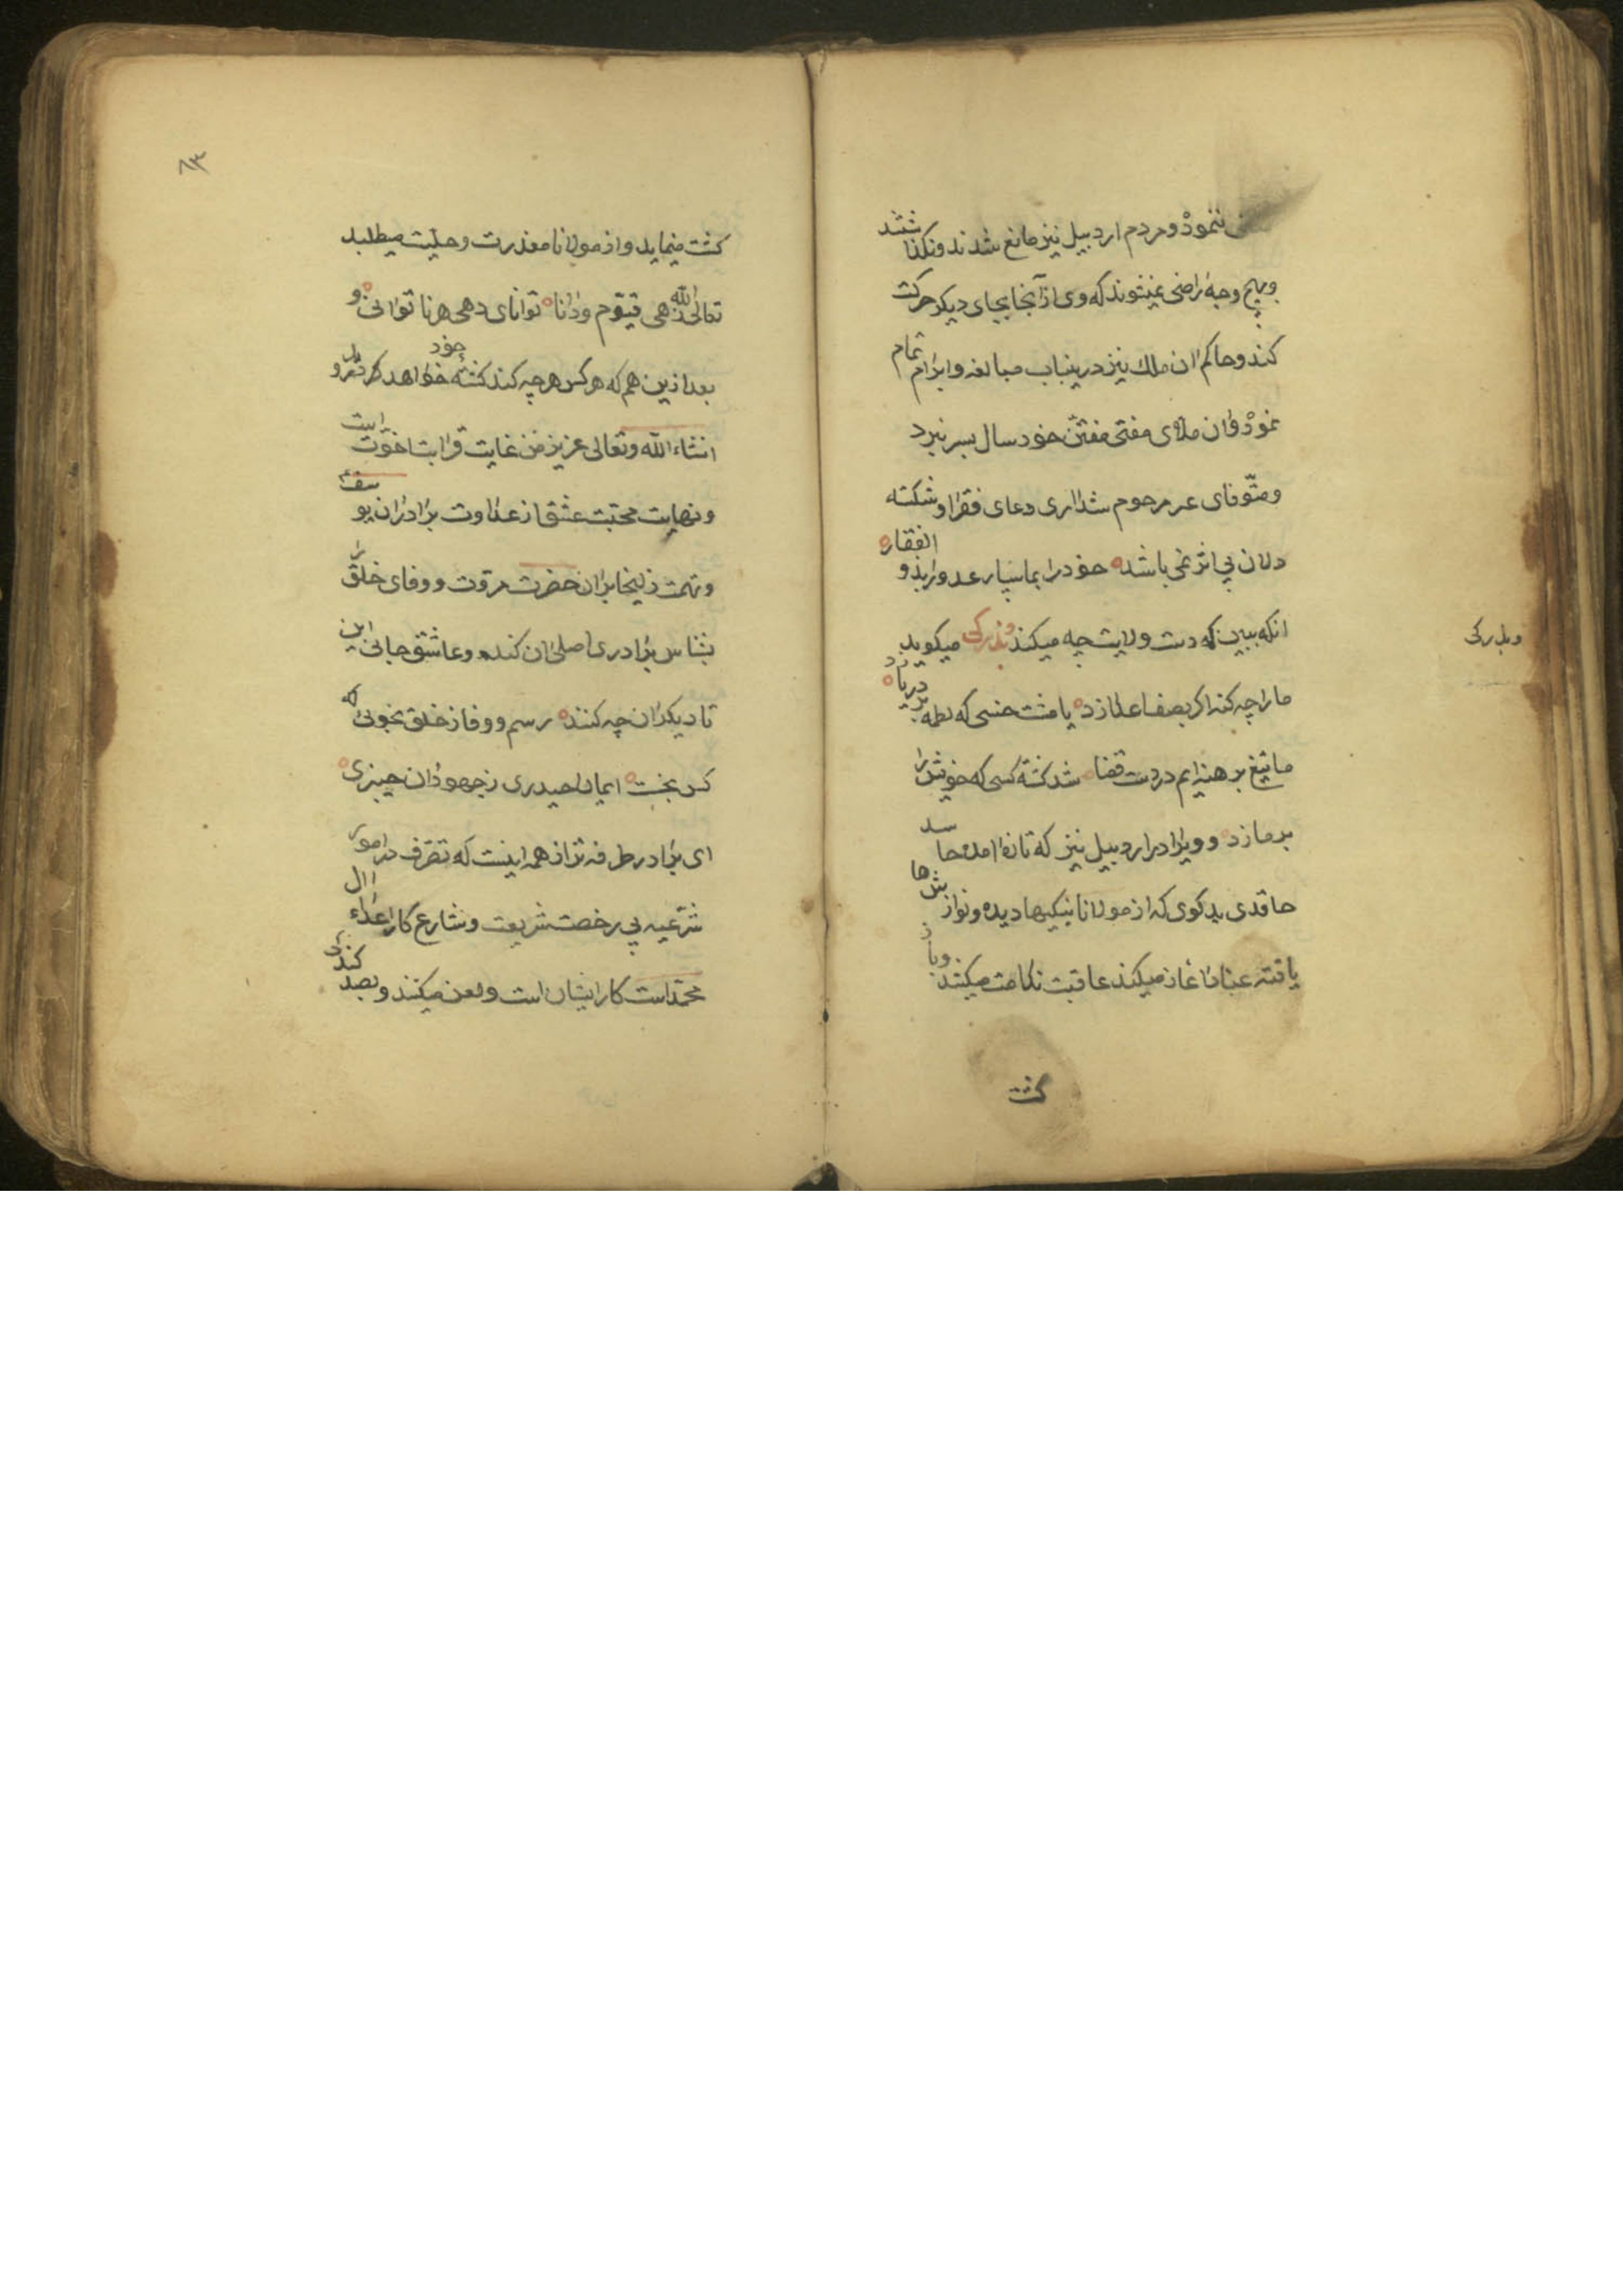 ننمود و مردم اردبیل نیز مانع شدند و نکذاشتند
وبهیچ وجه راضی نمیشوند که وی از آنجا بجای دیکر حرکت
کند و حاکم ان ملك نیز درینباب مبالغه و ابرام تمام
نمود و ان ملای مفتی مفتن خود سال بسر نبرد
ومتوفای عمر مرحوم شد اری دعای فقرا و شکسته
دلان بی اثر نمی باشد خود را بما سپار عدو را بذو الفقار
انکه ببین که دست ولایت چه میکند و بذرکی میکوید
و بذرکی
ما را چه کند اکر بصف اعدا زد یا مشت خسی که لطمه بر دریا زد
ما تیغ برهنه ایم در دست قضا شد کشته کسی که خویش را
بر ما زد و ویرا در اردبیل نیز که تازه امده حاسد
حاقدی بدکوی که از مولانا نیکیها دیده و نوازشها
یافته عناد اغاز میکند عاقبت ندامت میکشد و باز
کشت
٨٣
کشت مینماید و از مولانا معذرت و حلیت میطلبد
تعالی الله زهی قیوم و دانا توانای دهی هر نا توانی و
بعد ازین هم که هر کس هر چه کند کشته خود خواهد درود
انشاء الله وتعالی عزیز من غایت قرابت اخوت است
ونهایت محبت عشق از عداوت برادران یوسف
و تهمت زلیخا بر ان حضرت مروت و وفای خلق را
بشناس برادری اصلی ان کنده وعاشق جانی این
تا دیکران چه کنند رسم و وفا ز خلق نجوئی که
کس نجست ایمان حیدری ز جهودان خیبری
ای برادر طرفه تر از همه اینست که تصرف در امور
شرعیه بی رخصت شریعت و شارع کار اعداء ال
محمد است کار ایشان است و لعن میکنند و بصد